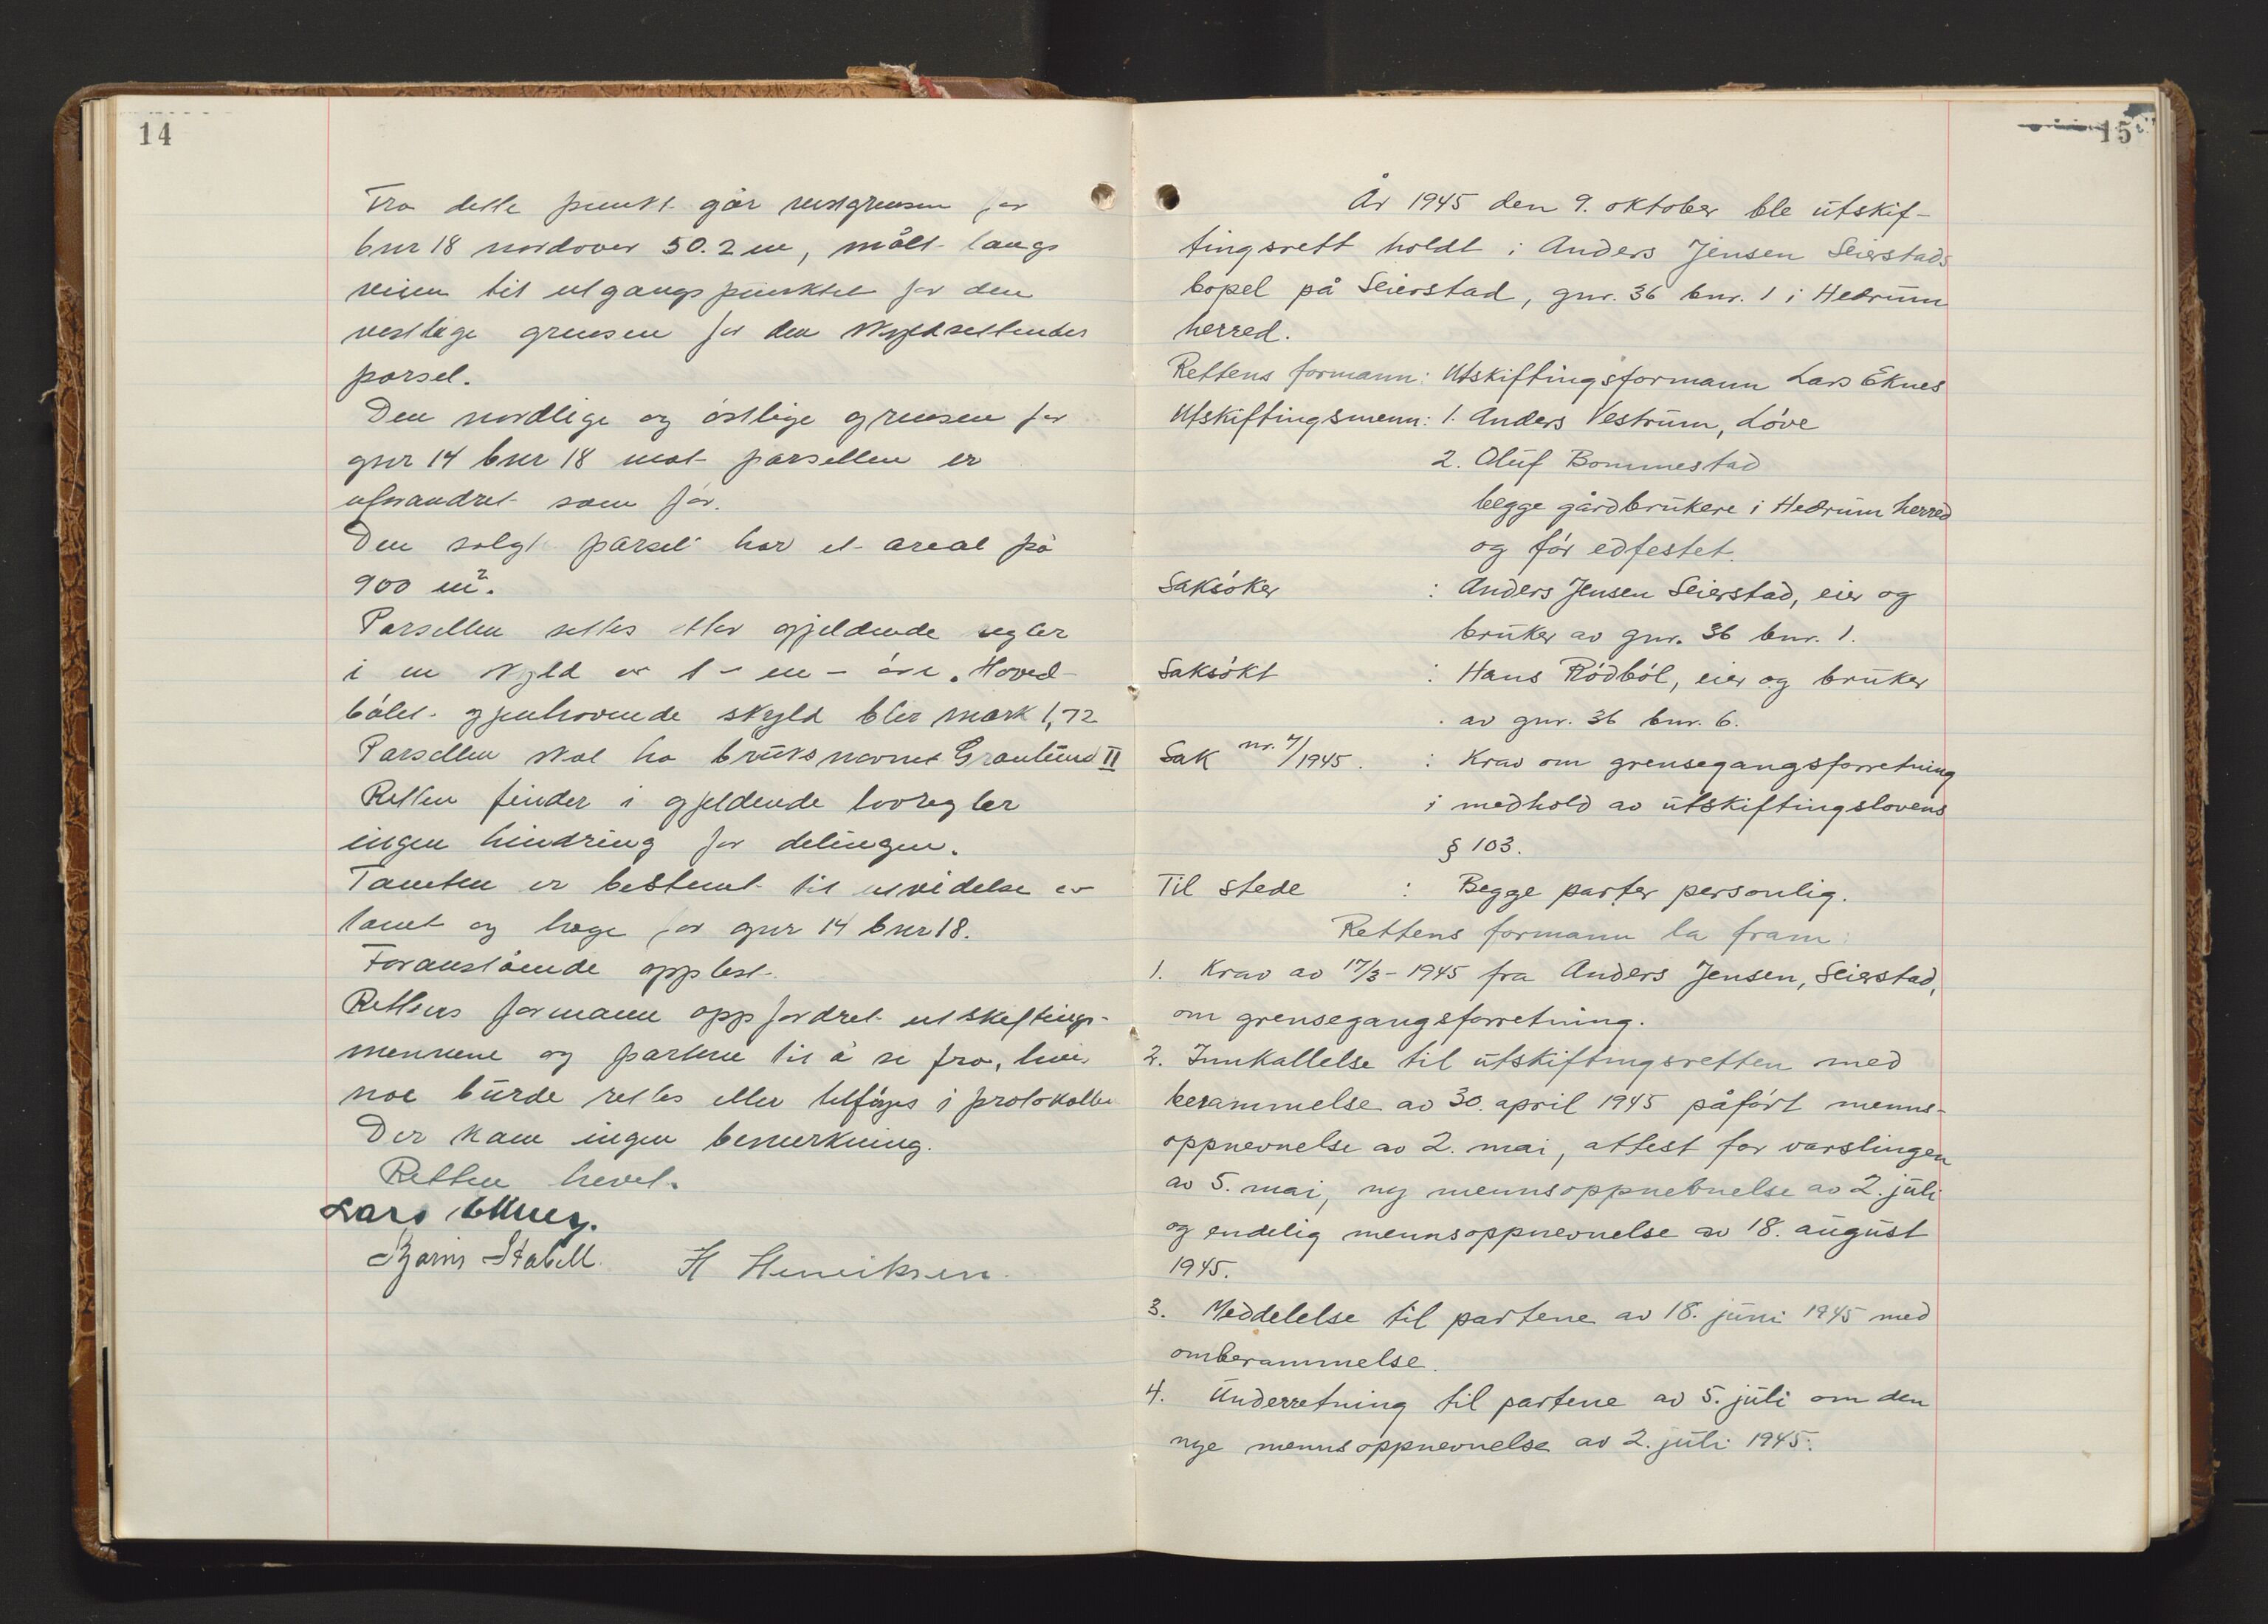 14
Fra dette punkt går vestgrensen for
bnr 18 nordover 50.2 m, målt langs
veien til utgangspunktet for den
vestlige grensen for den skyldsettendes
parsel.
Den nordlige og østlige grensen for
gnr 14 bnr 18 mot parsellen er
uforandret som før.
Den solgt parsel har et areal på
900 m².
Parsellen settes etter gjeldende regler
i en skyld av 1 - en - øre. Hoved-
bølet gjenhavende skyld blir mark 1,72
Parsellen skal ha bruksnavnet Granlund II
Retten finder i gjeldende lovregler
ingen hindring for delingen.
Tomten er bestemt til utvidelse av
tomt og hage for gnr 14 bnr 18.
Foranstående opplest.
Rettens formann oppfordret utskiftings-
mennene og partene til å se fra, hvis
noe burde rettes eller tilføyes i protokollen
Der kom ingen bemerkning.
Retten hevet.
Lars Eknes.
Bjarne Stabell. H Henriksen.
15
År 1945 den 9. oktober ble utskif-
tingsrett holdt i Anders Jensen Seierstads
bopel på Seierstad, gnr. 36 bnr. 1 i Hedrum
herred.
Rettens formann: Utskiftingsformann Lars Eknes
Utskiftingsmenn: 1. Anders Vestrum, Løve
2. Oluf Bommestad
begge gårdbrukere i Hedrum herred
og før edfestet.
Saksøker : Anders Jensen Seierstad, eier og
bruker av gnr. 36 bnr. 1.
Saksøkt : Hans Rødbøl, eier og bruker
av gnr. 36 bnr. 6.
Sak nr. 7/1945. : Krav om grensegangsforretning
i medhold av utskiftingslovens
§ 103.
Til stede : Begge parter personlig.
Rettens formann la fram:
1. Krav av 17/3-1945 fra Anders Jensen, Seierstad,
om grensegangsforretning.
2. Innkallelse til utskiftingsretten med
berammelse av 30. april 1945 påført menns-
oppnevnelse av 2. mai, attest for varslingen
av 5. mai, ny mennsoppnevnelse av 2. juli
og endelig mennsoppnevnelse av 18. august
1945.
3. Meddelelse til partene av 18. juni 1945 med
omberammelse.
4. Underretning til partene av 5. juli om den
nye mennsoppnevnelse av 2. juli 1945.